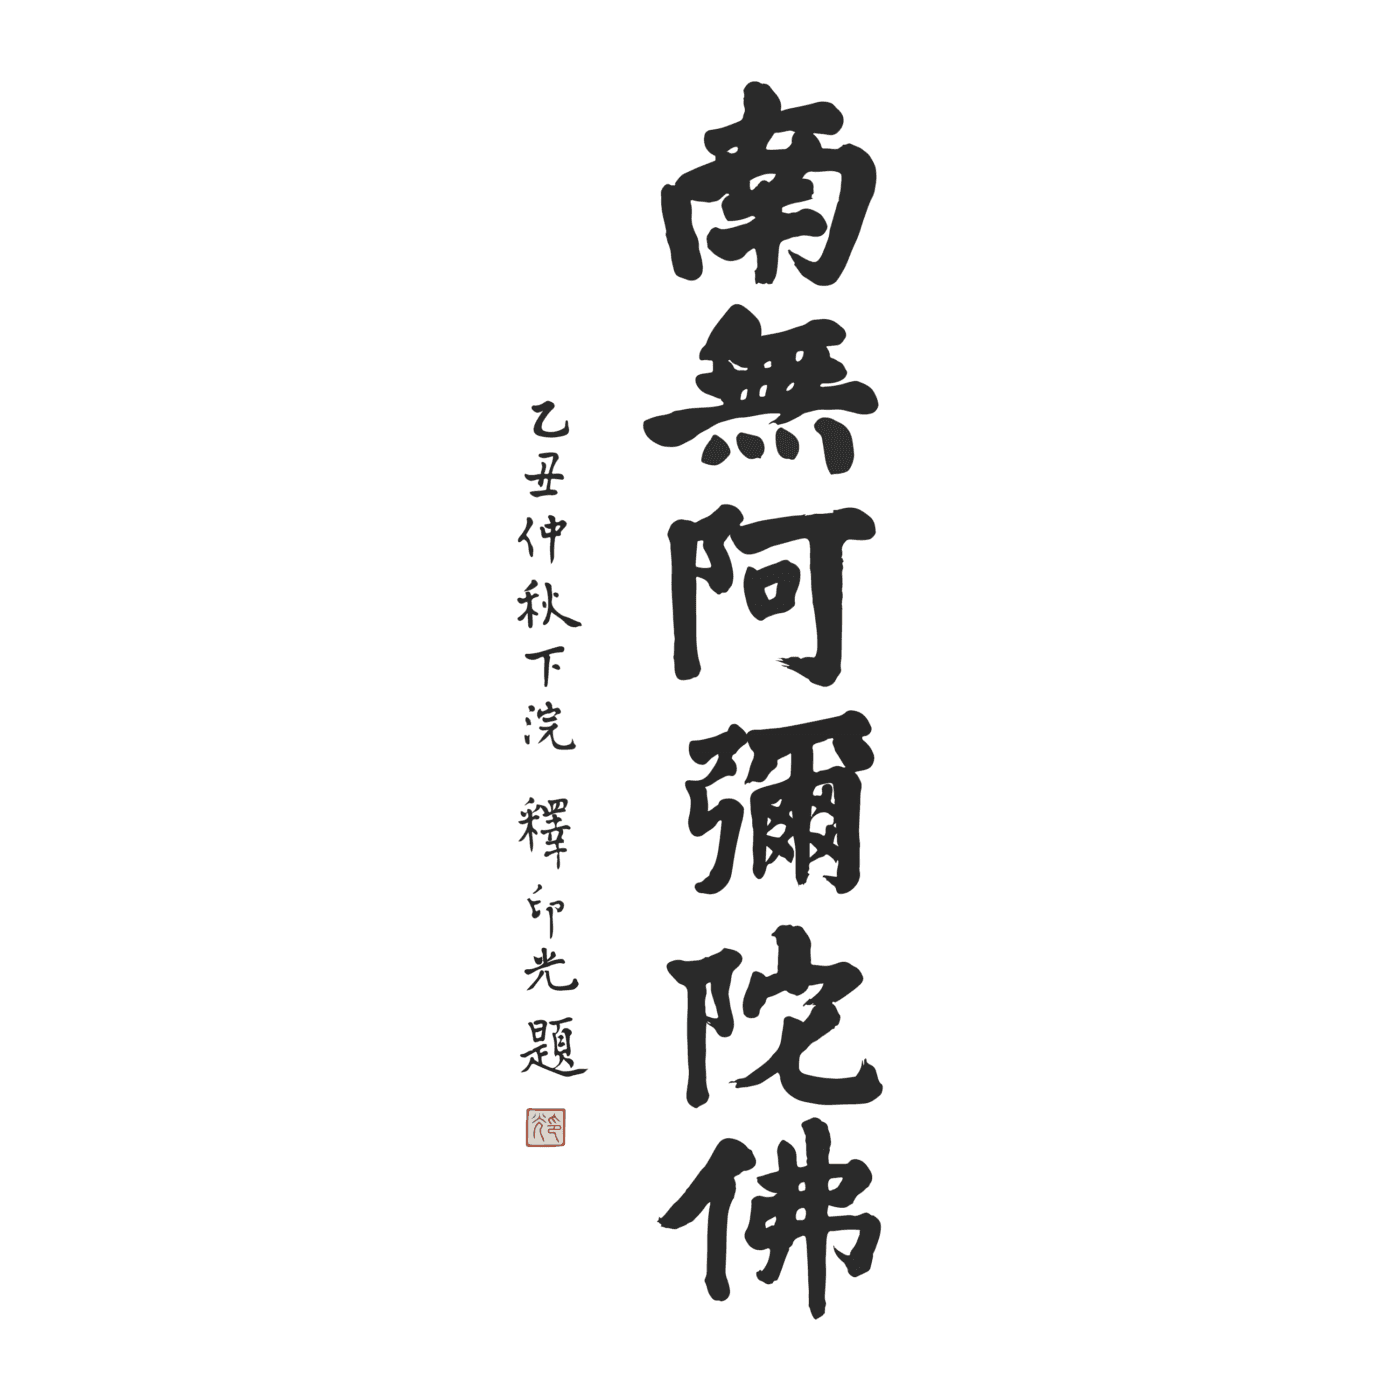 南無阿彌陀佛
乙丑仲秋下浣 釋印光題
印光